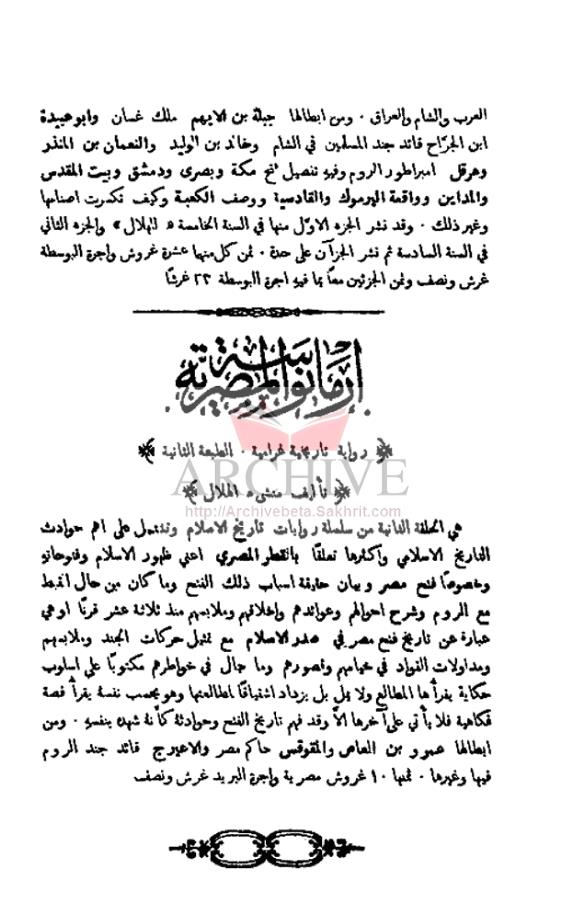 العرب والشام والعراق . ومن ابطالها جبلة بن الايهم ملك غسان وابو عبيدة
ابن الجرّاح قائد جند المسلمين في الشام وخالد بن الوليد والنعمان بن المنذر
وهرقل امبراطور الروم وفيها تفصيل فتح مكة وبصرى ودمشق وبيت المقدس
والمداين وواقعة اليرموك والقادسية ووصف الكعبة وكيف تكسرت اصنامها
وغير ذلك . وقد نشر الجزء الاوّل منها في السنة الخامسة « للهلال » والجزء الثاني
في السنة السادسة ثم نشر الجزآن على حدة . ثمن كل منهما عشرة غروش واجرة البوسطة
غرش ونصف وثمن الجزئين معاً بما فيه اجرة البوسطة ٢٣ غرشاً
ارمانوسة المصرية
رواية تاريخية غرامية . الطبعة الثانية
تأليف منشىء الهلال
ARCHIVE
http://Archivebeta.Sakhrit.com
هي الحلقة الثانية من سلسلة روايات تاريخ الاسلام وتشتمل على اهم حوادث
التاريخ الاسلامي واكثرها تعلقاً بالقطر المصري اعني ظهور الاسلام وفتوحاته
وخصوصاً فتح مصر وبيان حقيقة اسباب ذلك الفتح وما كان من حال القبط
مع الروم وشرح احوالهم وعوائدهم واخلاقهم وملابسهم منذ ثلاثة عشر قرناً او هي
عبارة عن تاريخ فتح مصر في صدر الاسلام مع تمثيل حركات الجند وملابسهم
ومداولات القواد في خيامهم وقصورهم وما جال في خواطرهم مكتوباً على اسلوب
حكاية يقرأها المطالع ولا يمل بل يزداد اشتياقاً لمطالعتها وهو يحسب نفسه يقرأ قصة
فكاهية فلا يأتي على آخرها الاّ وقد فهم تاريخ الفتح وحوادثه كأنه شهده بنفسه . ومن
ابطالها عمرو بن العاص والمقوقس حاكم مصر والاعيرج قائد جند الروم
فيها وغيرها . ثمنها ١٠ غروش مصرية واجرة البريد غرش ونصف